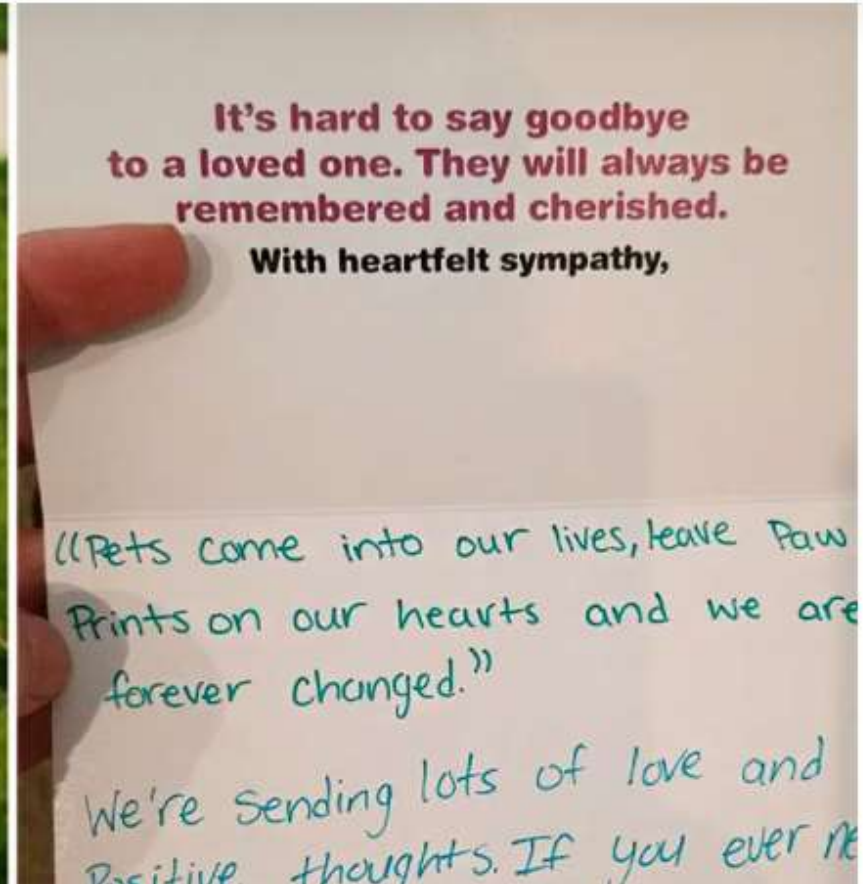 It's hard to say goodbye
to a loved one. They will always be
remembered and cherished.
With heartfelt sympathy,
"Pets come into our lives, leave Paw
Prints on our hearts and we are
forever changed."
We're sending lots of love and
Positive thoughts. If you ever ne